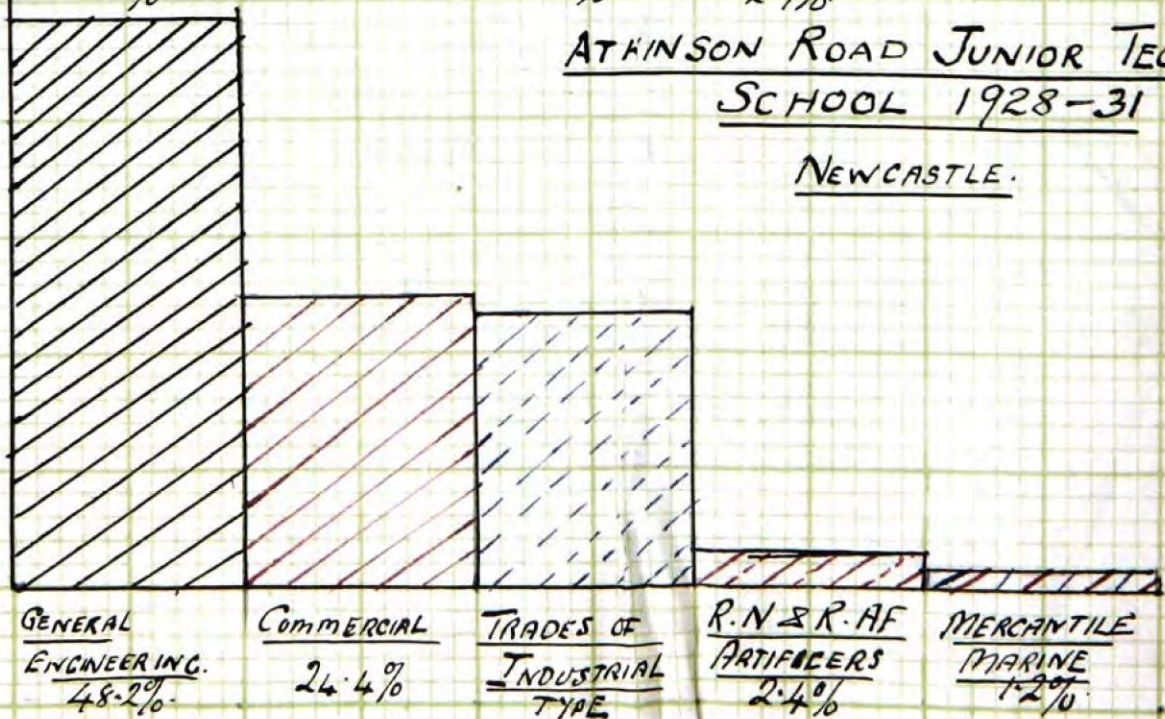 ATKINSON ROAD JUNIOR
SCHOOL 1928-31
NEWCASTLE.
GENERAL
ENGINEERING.
48.2%
COMMERCIAL
24.4%
TRADES OF
INDUSTRIAL
TYPE
R.N & R.AF
ARTIFICERS
2.4%
MERCANTILE
MARINE
1.2%